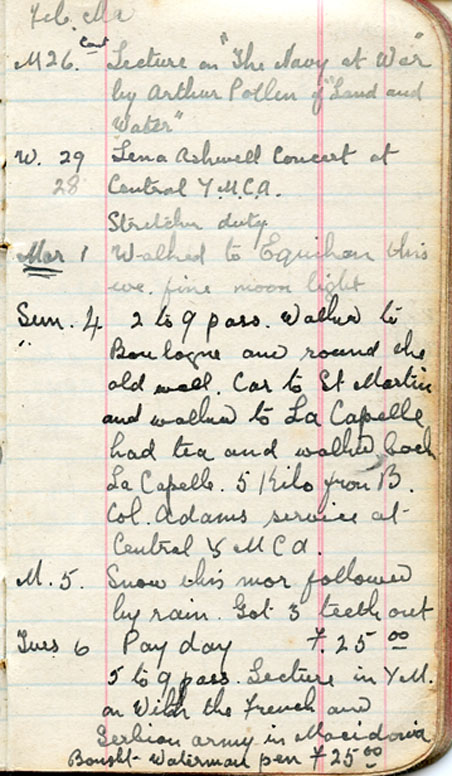 Feb. Mar
M 26. Cont Lecture on "The Navy at War"
by Arthur Pollen of "Land and
Water"
W. 29 Lena Ashwell Concert at
28 Central Y.M.C.A.
Stretcher duty
Mar 1 Walked to Equihan this
eve. fine moon light
Sun. 4 2 to 9 pass. Walked to
" Boulogne and round the
old wall. Car to St Martin
and walked to La Capelle
had tea and walked back
La Capelle. 5 Kilo from B.
Col. Adams service at
Central Y M C A.
M. 5. Snow this mor followed
by rain. Got 3 teeth out
Tues 6 Pay day F. 25 00
5 to 9 pass. Lecture in Y M.
on With the French and
Serbian army in Macidonia
Bought Waterman pen F 25 00